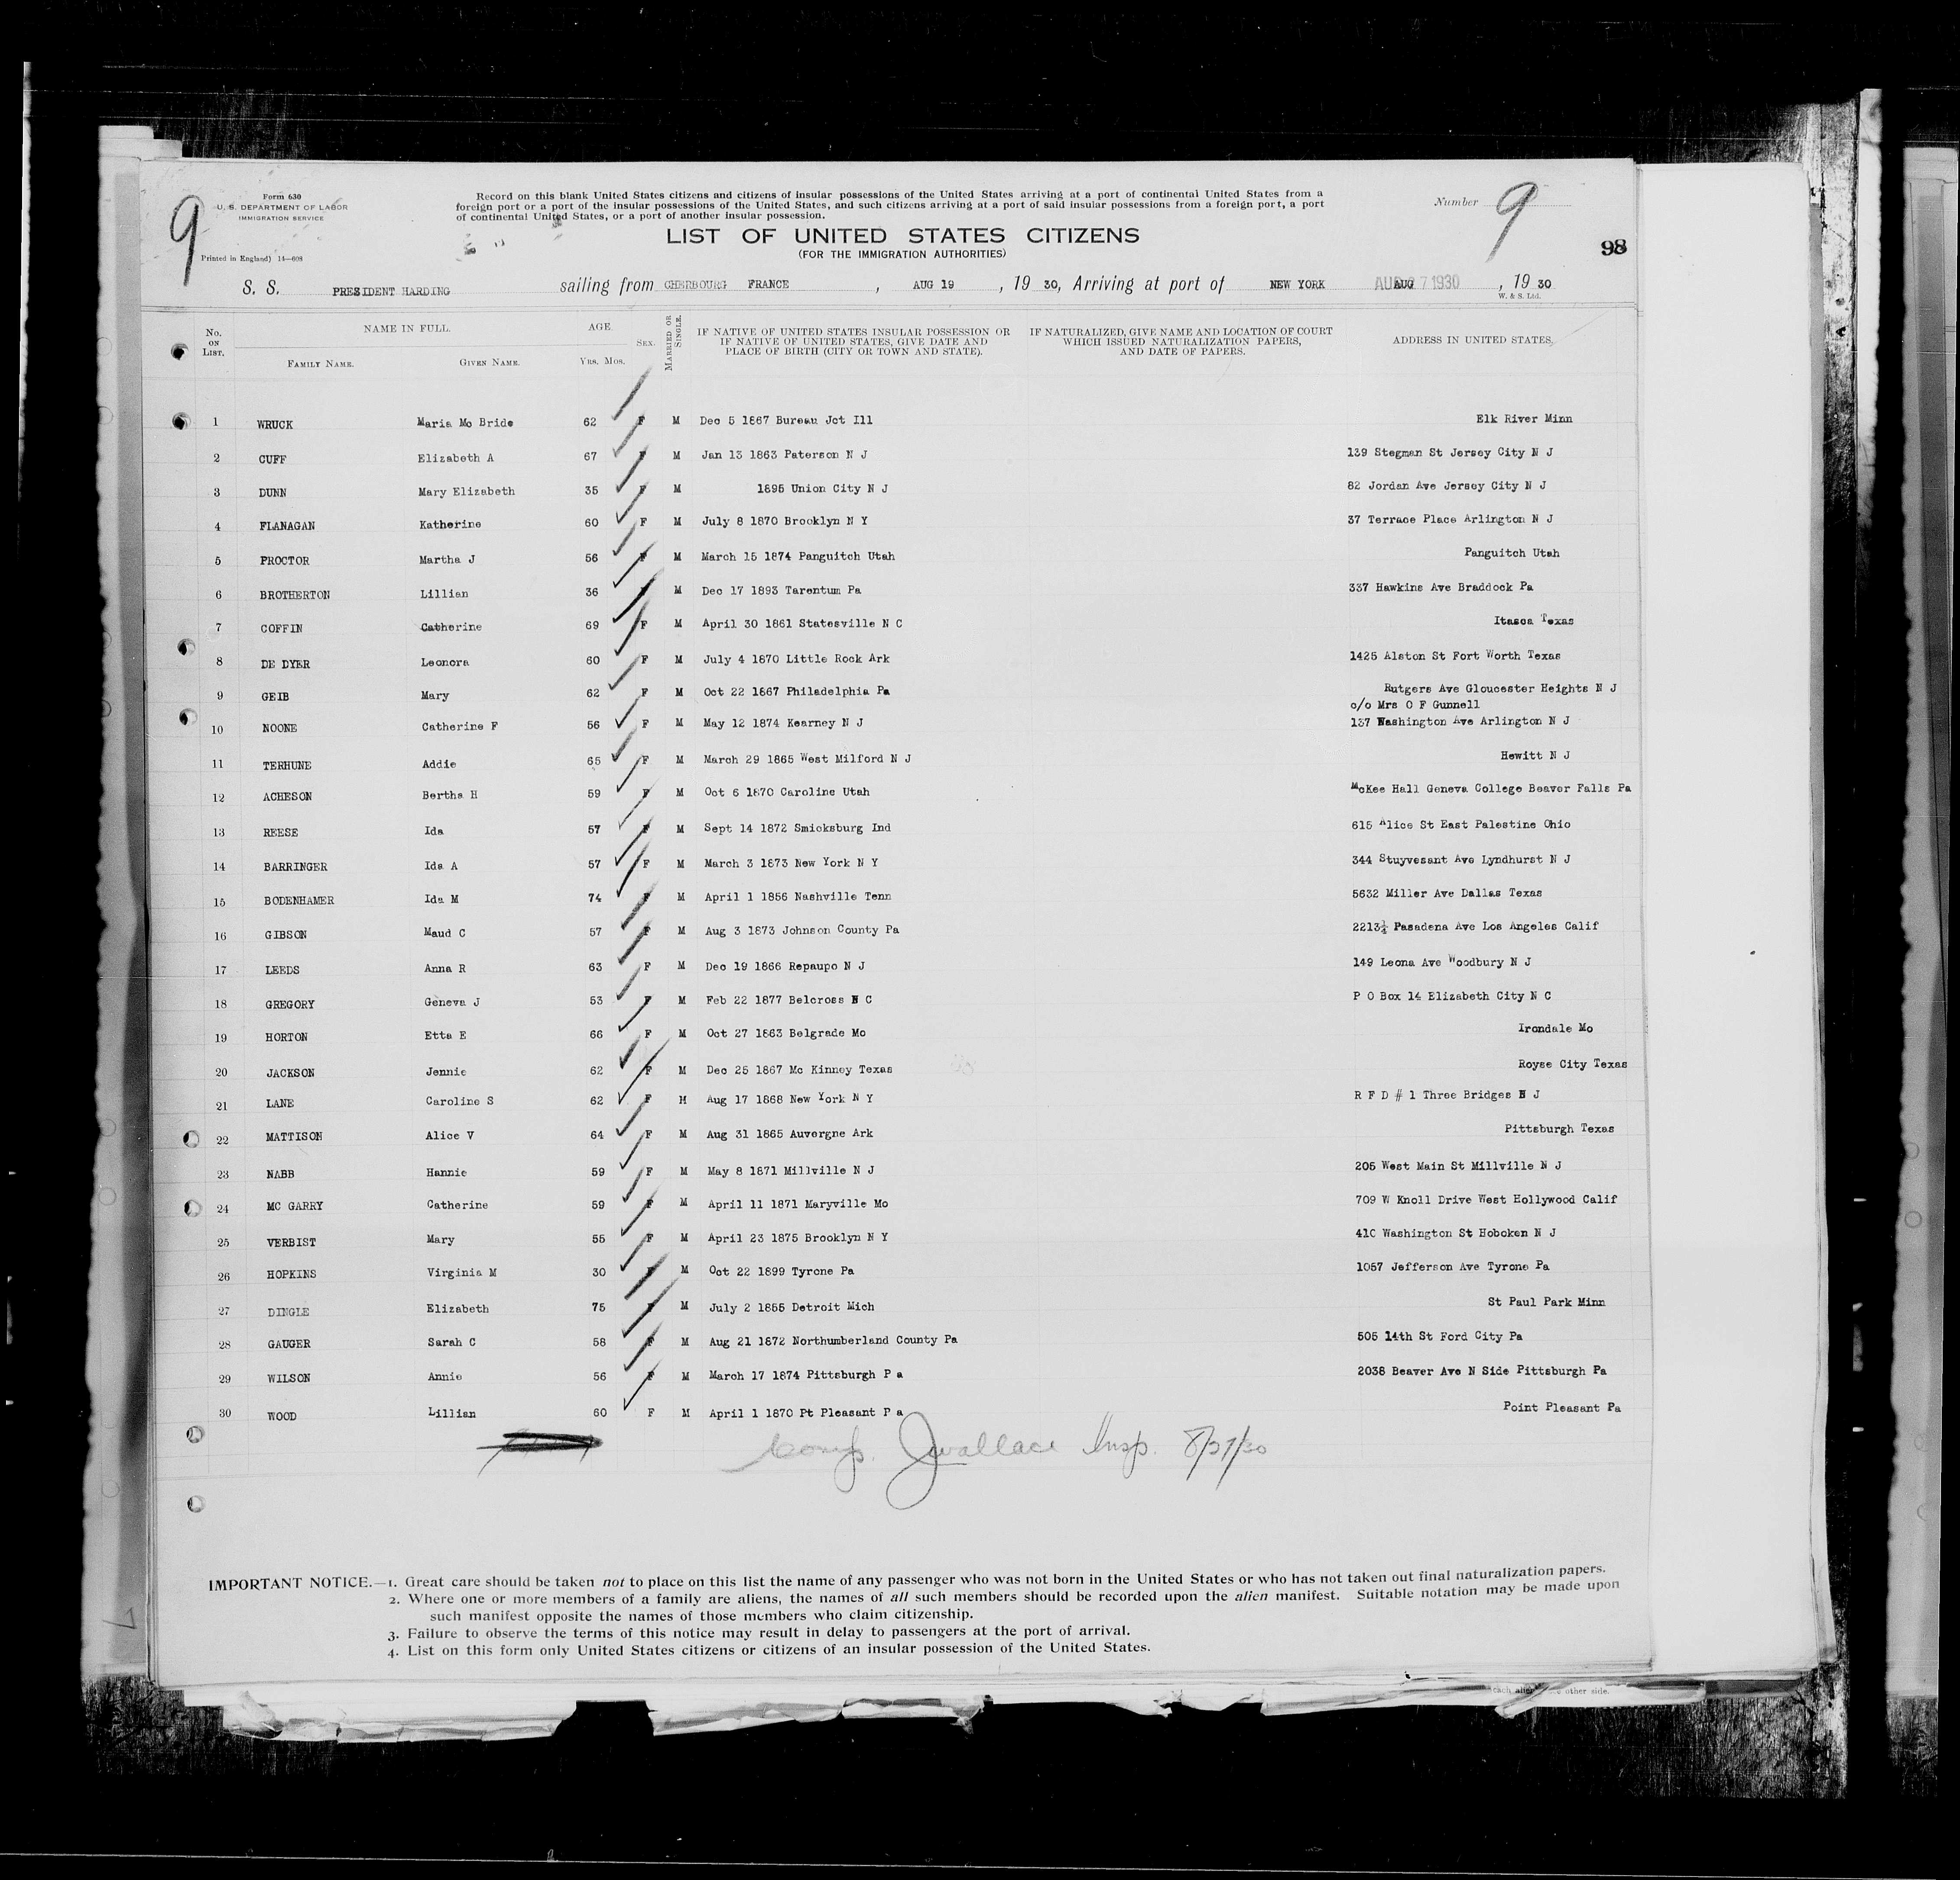 9
Form 630
U. S. DEPARTMENT OF LABOR
IMMIGRATION SERVICE
Printed in England) 14—608
Record on this blank United States citizens and citizens of insular possessions of the United States arriving at a port of continental United States from a
foreign port or a port of the insular possessions of the United States, and such citizens arriving at a port of said insular possessions from a foreign port, a port
of continental United States, or a port of another insular possession.
Number 9
98
LIST OF UNITED STATES CITIZENS
(FOR THE IMMIGRATION AUTHORITIES)
S. S. PRESIDENT HARDING sailing from CHERBOURG FRANCE , AUG 19 , 19 30, Arriving at port of NEW YORK AUG 27 1930 , 19 30
W. & S. Ltd.
No. ON LIST. NAME IN FULL. FAMILY NAME. GIVEN NAME. AGE. YRS. MOS. SEX. MARRIED OR SINGLE. IF NATIVE OF UNITED STATES INSULAR POSSESSION OR IF NATIVE OF UNITED STATES, GIVE DATE AND PLACE OF BIRTH (CITY OR TOWN AND STATE). IF NATURALIZED, GIVE NAME AND LOCATION OF COURT WHICH ISSUED NATURALIZATION PAPERS, AND DATE OF PAPERS. ADDRESS IN UNITED STATES.
1 WRUCK Maria Mc Bride 62 F M Dec 5 1867 Bureau Jct Ill Elk River Minn
2 CUFF Elizabeth A 67 F M Jan 13 1863 Paterson N J 139 Stegman St Jersey City N J
3 DUNN Mary Elizabeth 35 F M 1895 Union City N J 82 Jordan Ave Jersey City N J
4 FLANAGAN Katherine 60 F M July 8 1870 Brooklyn N Y 37 Terrace Place Arlington N J
5 PROCTOR Martha J 56 F M March 15 1874 Panguitch Utah Panguitch Utah
6 BROTHERTON Lillian 36 F M Dec 17 1893 Tarentum Pa 337 Hawkins Ave Braddock Pa
7 COFFIN Catherine 69 F M April 30 1861 Statesville N C Itasca Texas
8 DE DYER Leonora 60 F M July 4 1870 Little Rock Ark 1425 Alston St Fort Worth Texas
9 GEIB Mary 62 F M Oct 22 1867 Philadelphia Pa Rutgers Ave Gloucester Heights N J
c/o Mrs O F Gunnell
10 NOONE Catherine F 56 F M May 12 1874 Kearney N J 137 Washington Ave Arlington N J
11 TERHUNE Addie 65 F M March 29 1865 West Milford N J Hewitt N J
12 ACHESON Bertha H 59 F M Oct 6 1870 Caroline Utah McKee Hall Geneva College Beaver Falls Pa
13 REESE Ida 57 F M Sept 14 1872 Smicksburg Ind 615 Alice St East Palestine Ohio
14 BARRINGER Ida A 57 F M March 3 1873 New York N Y 344 Stuyvesant Ave Lyndhurst N J
15 BODENHAMER Ida M 74 F M April 1 1856 Nashville Tenn 5632 Miller Ave Dallas Texas
16 GIBSON Maud C 57 F M Aug 3 1873 Johnson County Pa Pasadena Ave Los Angeles Calif
17 LEEDS Anna R 63 F M Dec 19 1866 Repaupo N J 149 Leona Ave Woodbury N J
18 GREGORY Geneva J 53 F M Feb 22 1877 Belcross N C P O Box 14 Elizabeth City N C
19 HORTON Etta E 66 F M Oct 27 1863 Belgrade Mo Irondale Mo
20 JACKSON Jennie 62 F M Dec 25 1867 Mc Kinney Texas Royse City Texas
21 LANE Caroline S 62 F M Aug 17 1868 New York N Y R F D # 1 Three Bridges N J
22 MATTISON Alice V 64 F M Aug 31 1865 Auvergne Ark Pittsburgh Texas
23 NABB Hannie 59 F M May 8 1871 Millville N J 205 West Main St Millville N J
24 MC GARRY Catherine 59 F M April 11 1871 Maryville Mo 709 W Knoll Drive West Hollywood Calif
25 VERBIST Mary 55 F M April 23 1875 Brooklyn N Y 410 Washington St Hoboken N J
26 HOPKINS Virginia M 30 F M Oct 22 1899 Tyrone Pa 1057 Jefferson Ave Tyrone Pa
27 DINGLE Elizabeth 75 F M July 2 1855 Detroit Mich St Paul Park Minn
28 GAUGER Sarah C 58 F M Aug 21 1872 Northumberland County Pa 505 14th St Ford City Pa
29 WILSON Annie 56 F M March 17 1874 Pittsburgh P a 2038 Beaver Ave N Side Pittsburgh Pa
30 WOOD Lillian 60 F M April 1 1870 Pt Pleasant P a Point Pleasant Pa
Comp. JWallace Insp. 8/27/30
IMPORTANT NOTICE.—1. Great care should be taken not to place on this list the name of any passenger who was not born in the United States or who has not taken out final naturalization papers.
2. Where one or more members of a family are aliens, the names of all such members should be recorded upon the alien manifest. Suitable notation may be made upon
such manifest opposite the names of those members who claim citizenship.
3. Failure to observe the terms of this notice may result in delay to passengers at the port of arrival.
4. List on this form only United States citizens or citizens of an insular possession of the United States.
other side.